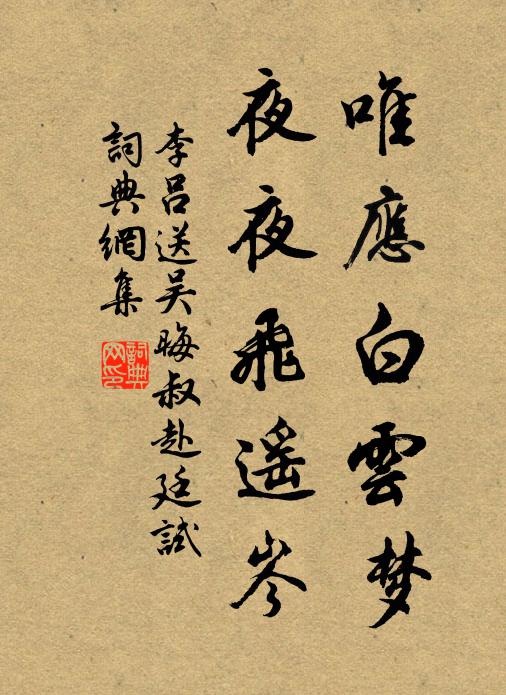 唯應白雲梦
夜夜飛遥岑
李吕送吴晦叔赴廷試
詞典網集
詞典网印